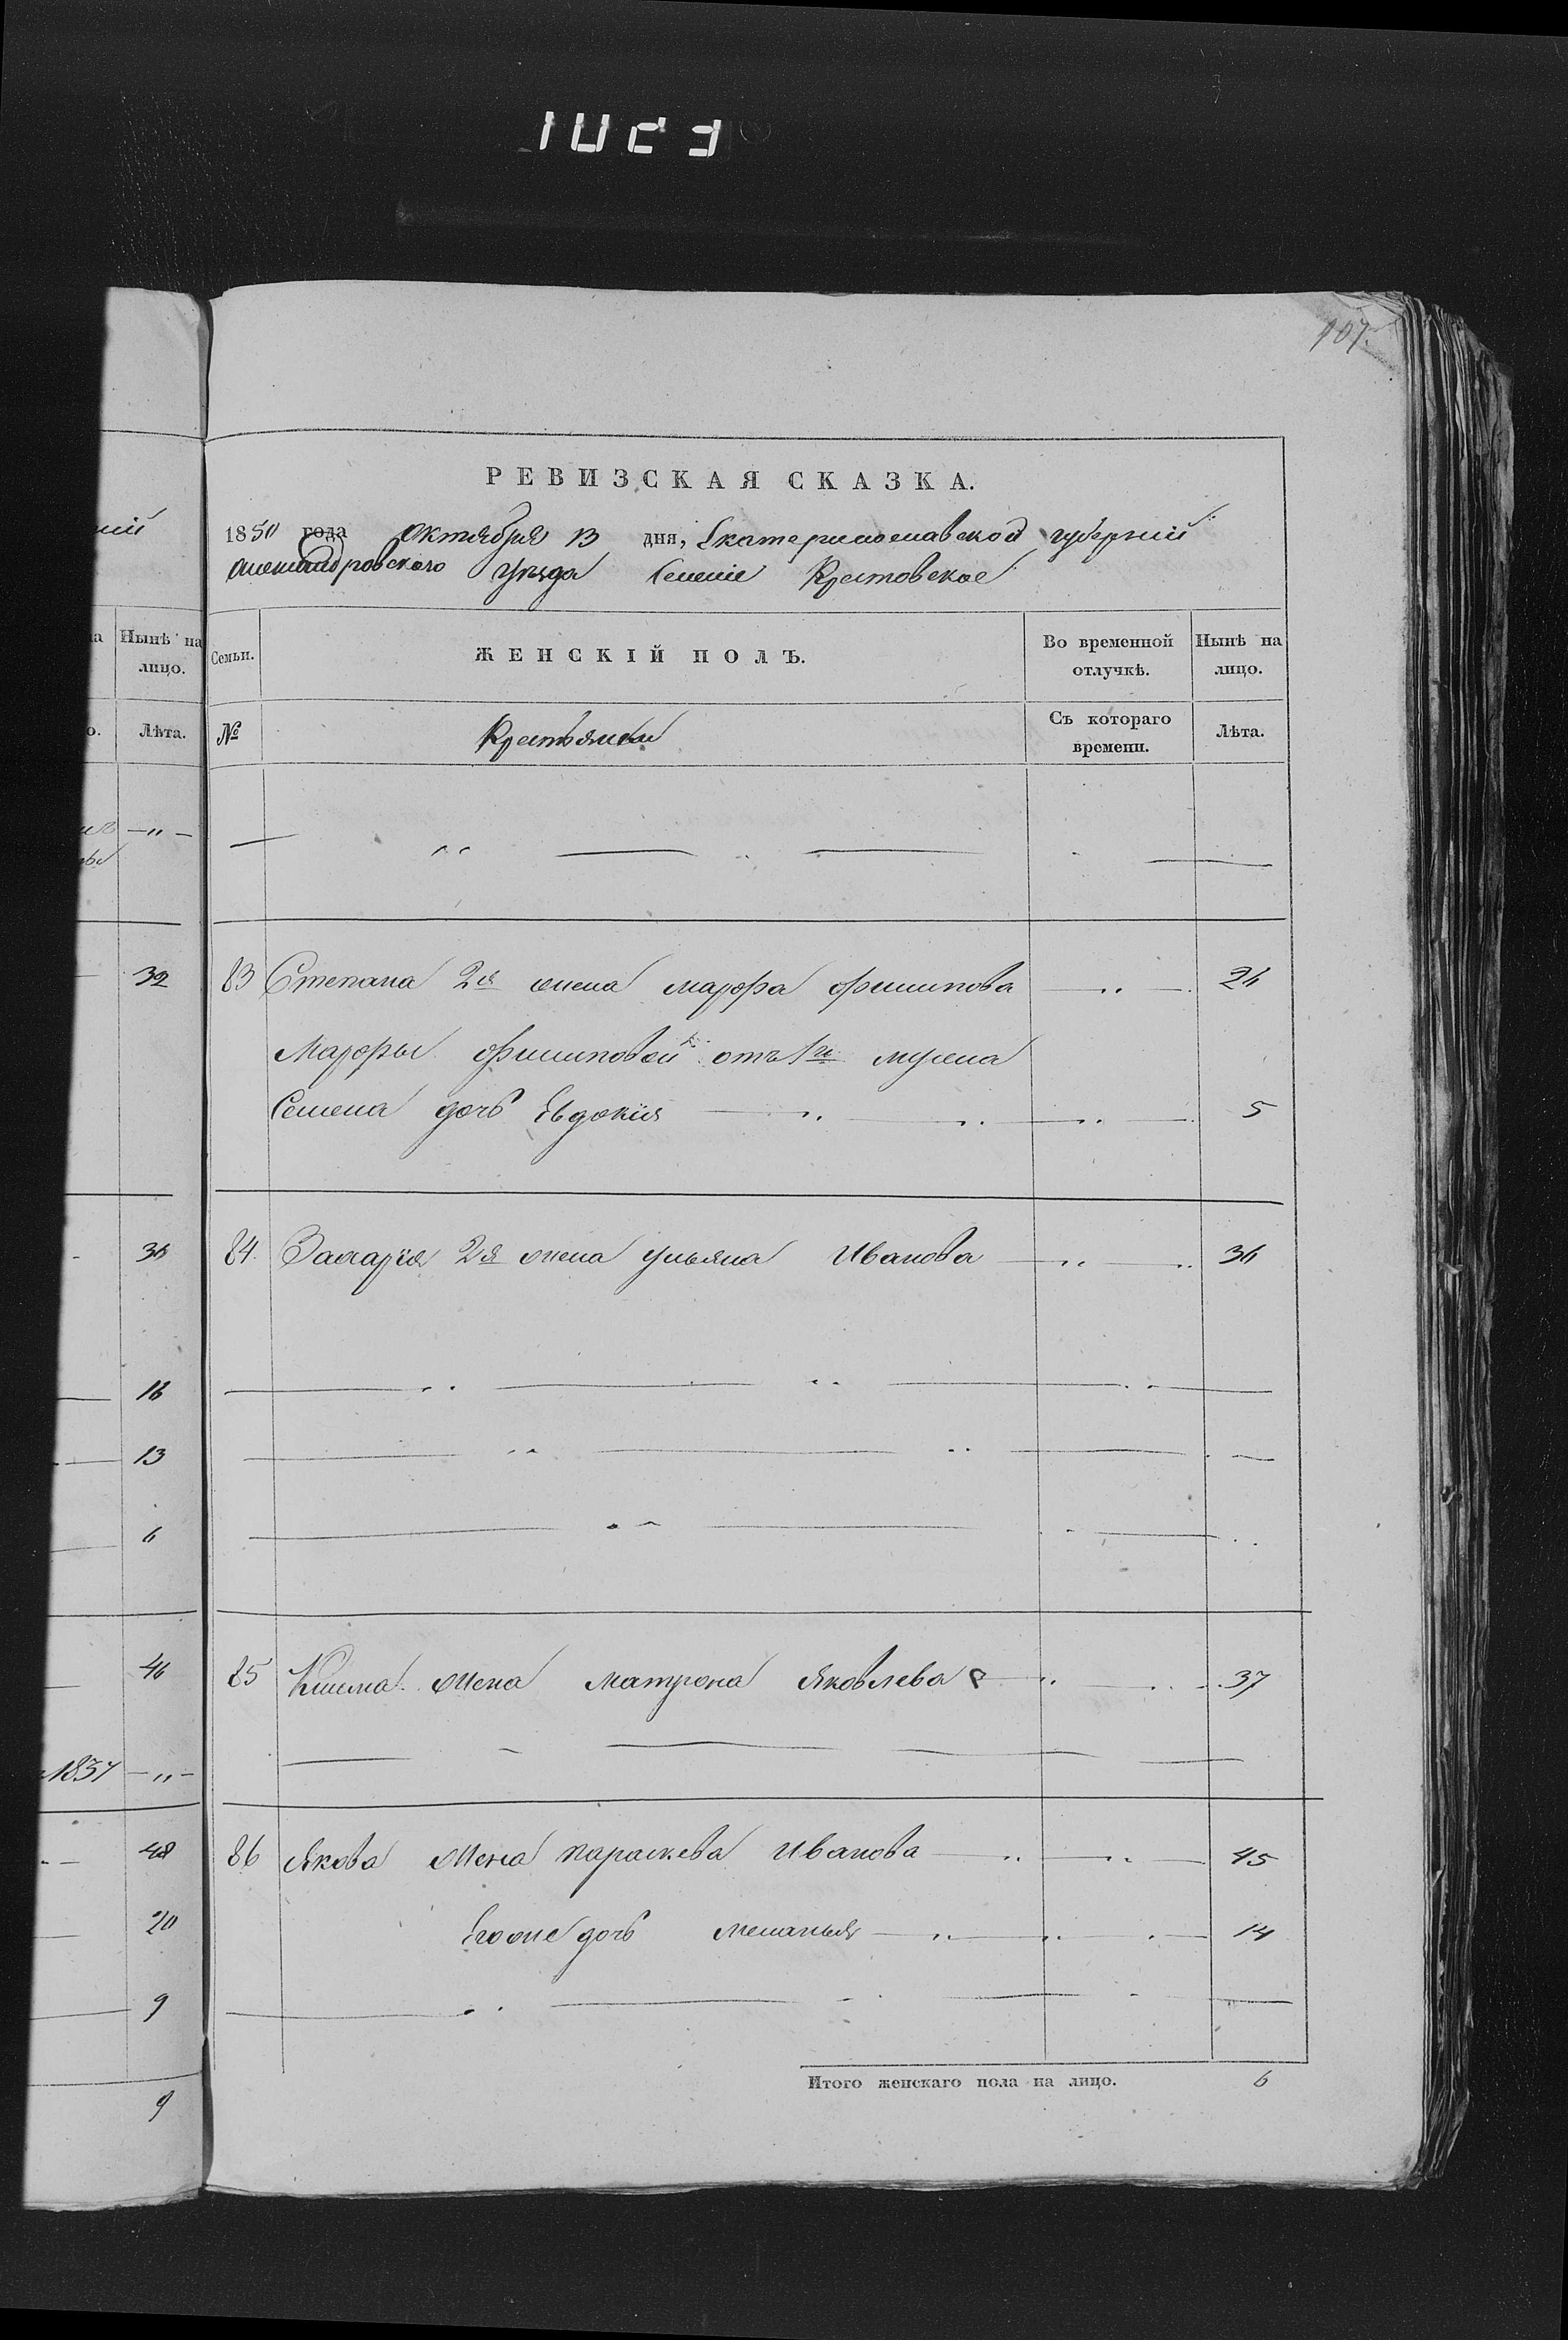 107.
РЕВИЗСКАЯ СКАЗКА.
1850 года Октября 13 дня, Екатеринославской губерніи
Александровского уезда Селеніе Крестовское
Нынѣ на лицо.
Семьи.
ЖЕНСКІЙ ПОЛЪ.
Во временной отлучкѣ.
Нынѣ на лицо.
Лѣта.
№
Крестьянки
Съ котораго времени.
Лѣта.
— „ —
32
83 Степана 2я жена Марфа Филипова — „ — 26
Марфы Филиповой отъ 1го мужа
Семена дочь Евдокія — „ — „ — „ — 5
36
84. Захарія 2я жена Ульяна Иванова — „ — „ 36
16
13
6
46
85 Клима жена Матрона Яковлева — „ — 37
1837 — „ —
48
86 Якова жена Параскева Иванова — „ — „ — 45
20
Егоже дочь Меланья — „ — „ — 14
9
Итого женскаго пола на лицо. 6
9